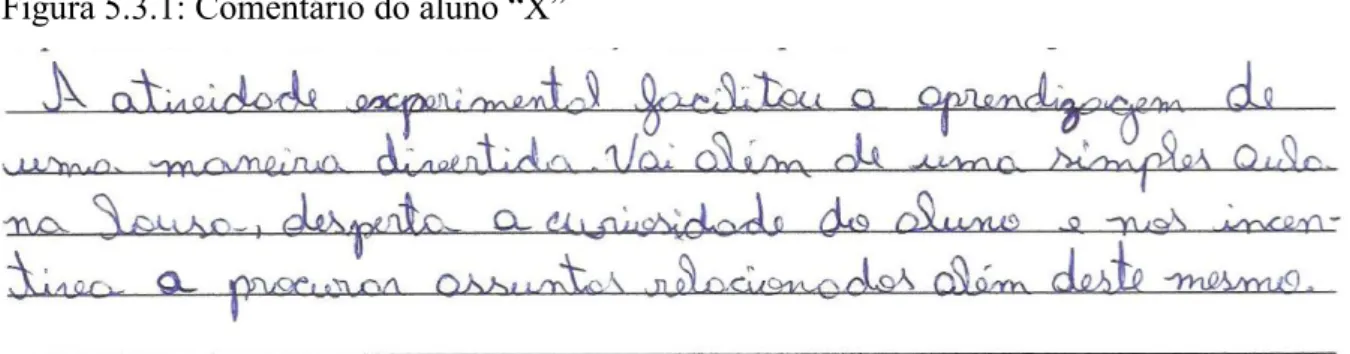 Figura 5.3.1: Comentário do aluno “X”
A atividade experimental facilitou a aprendizagem de
uma maneira divertida. Vai além de uma simples aula
na lousa, desperta a curiosidade do aluno e nos incen-
tiva a procurar assuntos relacionados além deste mesmo.